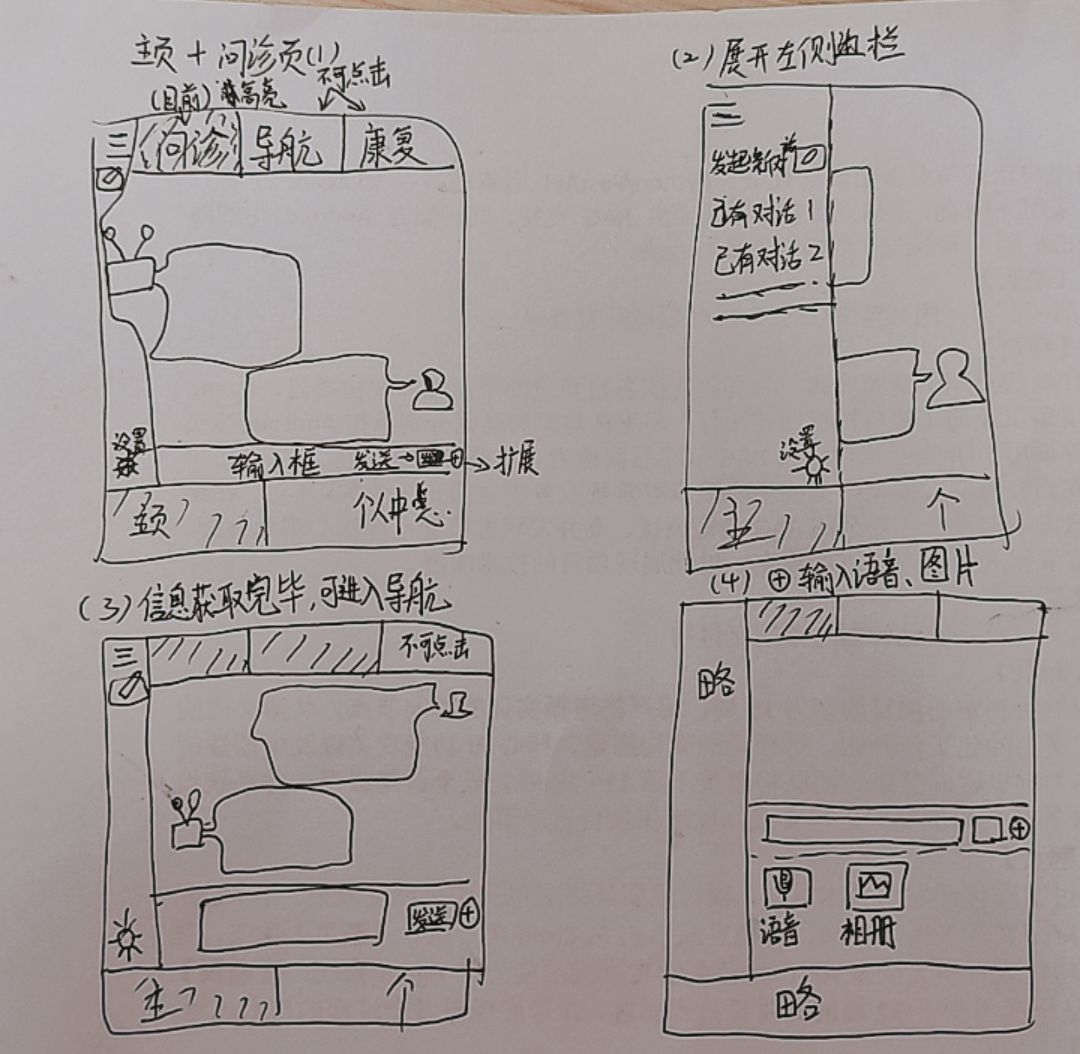 主页 + 问诊页(1)
不可点击
(目前) 高亮
三 问诊 导航 康复
设置
输入框 发送→ ⊕→扩展
主页 个人中心
(2) 展开左侧边栏
三
发起新对话
已有对话1
已有对话2
设置
主 个
(3) 信息获取完毕,可进入导航
三 不可点击
发送 ⊕
主 个
(4) ⊕ 输入语音、图片
略
⊕
语音 相册
略